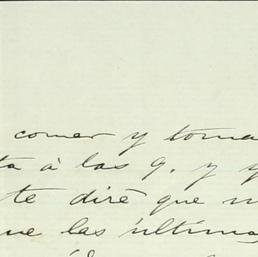 comer y toma
ta à las 9. y y
te diré que n
ue las últimas